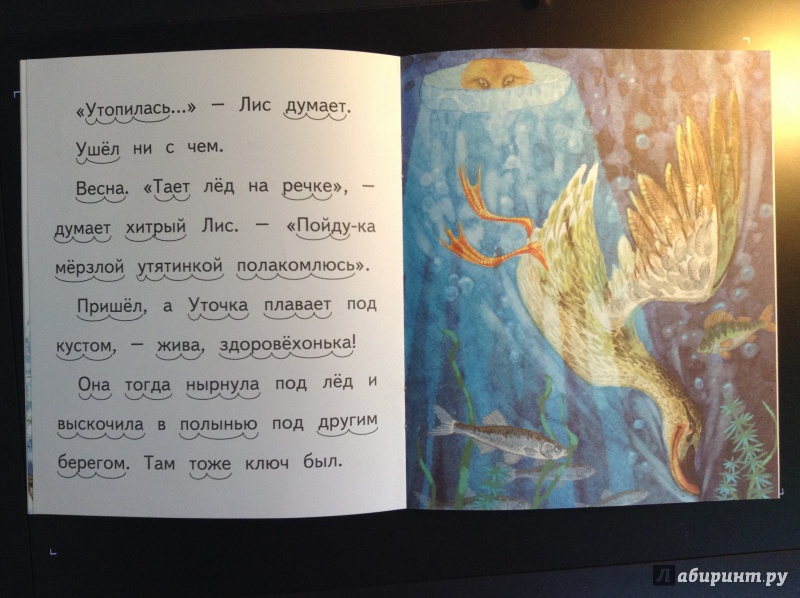 «Утопилась...» — Лис думает.
Ушёл ни с чем.
Весна. «Тает лёд на речке», —
думает хитрый Лис. — «Пойду-ка
мёрзлой утятинкой полакомлюсь».
Пришёл, а Уточка плавает под
кустом, — жива, здоровёхонька!
Она тогда нырнула под лёд и
выскочила в полынью под другим
берегом. Там тоже ключ был.
Лабиринт.ру